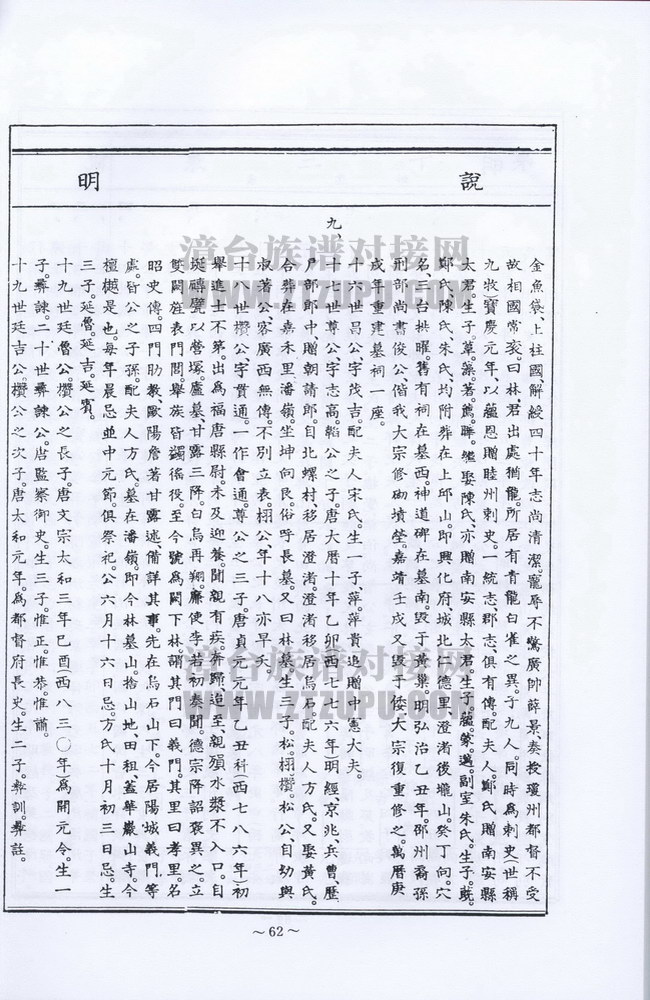 說明
金魚袋、上柱國、解綬四十年志尚清潔。寵辱不驚廣帥薛景、奏授瓊州都督不受
故相國常袞、曰林君出處猶龍。所居有青龍白雀之異。子九人。同時為刺史(世稱
九牧)寶慶元年、以蘊恩贈睦州刺史。一統志、郡志、俱有傳。配夫人鄭氏贈南安縣
太君。生子葦、藻、著、薦、曄。繼娶陳氏、亦贈南安縣太君。生子蘊、蒙、邁。副室朱氏。生子蔇。
鄭氏、陳氏、朱氏、均附葬在上邱山。即興化府、城北仁德里澄渚後壠山。癸丁向。穴
名、三台拱曜。舊有祠在墓西。神道碑在墓南。毀于黃巢。明弘治乙丑年。邵州裔孫
刑部尚書俊公偕我大宗修砌墳塋。嘉靖壬戌又毀于倭大宗復重修之。萬曆庚
戌年重建墓祠一座。
九、
十六世昌公、字茂吉。配夫人宋氏。生一子萍。萍貴追贈中憲大夫。
十七世尊公、字志高。韜公之子。唐大曆十年乙卯(西七七六年)明經、京兆兵曹、歷
戶部郎中、贈朝請郎。自北螺村、移居澄渚。澄渚移居烏石。配夫人方氏。又娶黃氏。
合葬在嘉禾里潘嶺。坐坤向艮。俗呼長墓。又曰林墓。生三子。松、栩、攢。松公自幼與
淑著公、客廣西無傳。不別立表。栩公、年十八亦早夭。
十八世攢公、字貫通。一作會通。尊公之三子。唐貞元元年乙丑科(西七八六年)初
舉進士不第。出為福唐縣尉。未及迎養。聞親有疾。奔歸。迨至、親殞水漿不入口。自
埏磚甓以營塚。廬墓、甘露三降。白烏再翔。廉使李若初奏聞。德宗降詔褒異之。立
雙闕旌表門閭。舉族皆蠲徭役。至今號為闕下林。謂其門曰義門。其里曰孝里。名
昭史傳。四門助教、歐陽詹著甘露述、備詳其事。先在烏石山下。今居陽城義門、等
處。皆公之子孫。配夫人方氏。墓在潘嶺。即今林墓山。捨山地、田租、蓋華巖山寺。今
檀樾是也。每年晨忌並中元節。俱祭祀。公六月十六日忌。方氏十月初三日忌。生
三子。延魯。延吉。延賓。
十九世廷魯公。攢公之長子。唐文宗太和三年己酉(西八三〇年)為開元令。生一
子。彝諫。二十世彝諫公。唐監察御史。生三子。惟正。惟恭。惟謙。
十九世廷吉公攢公之次子。唐太和元年。為都督府長史。生二子。彝訓。彝註。
~62~
漳台族谱对接网
WWW.ZTZUPU.COM
漳台族谱对接网
WWW.ZTZUPU.COM